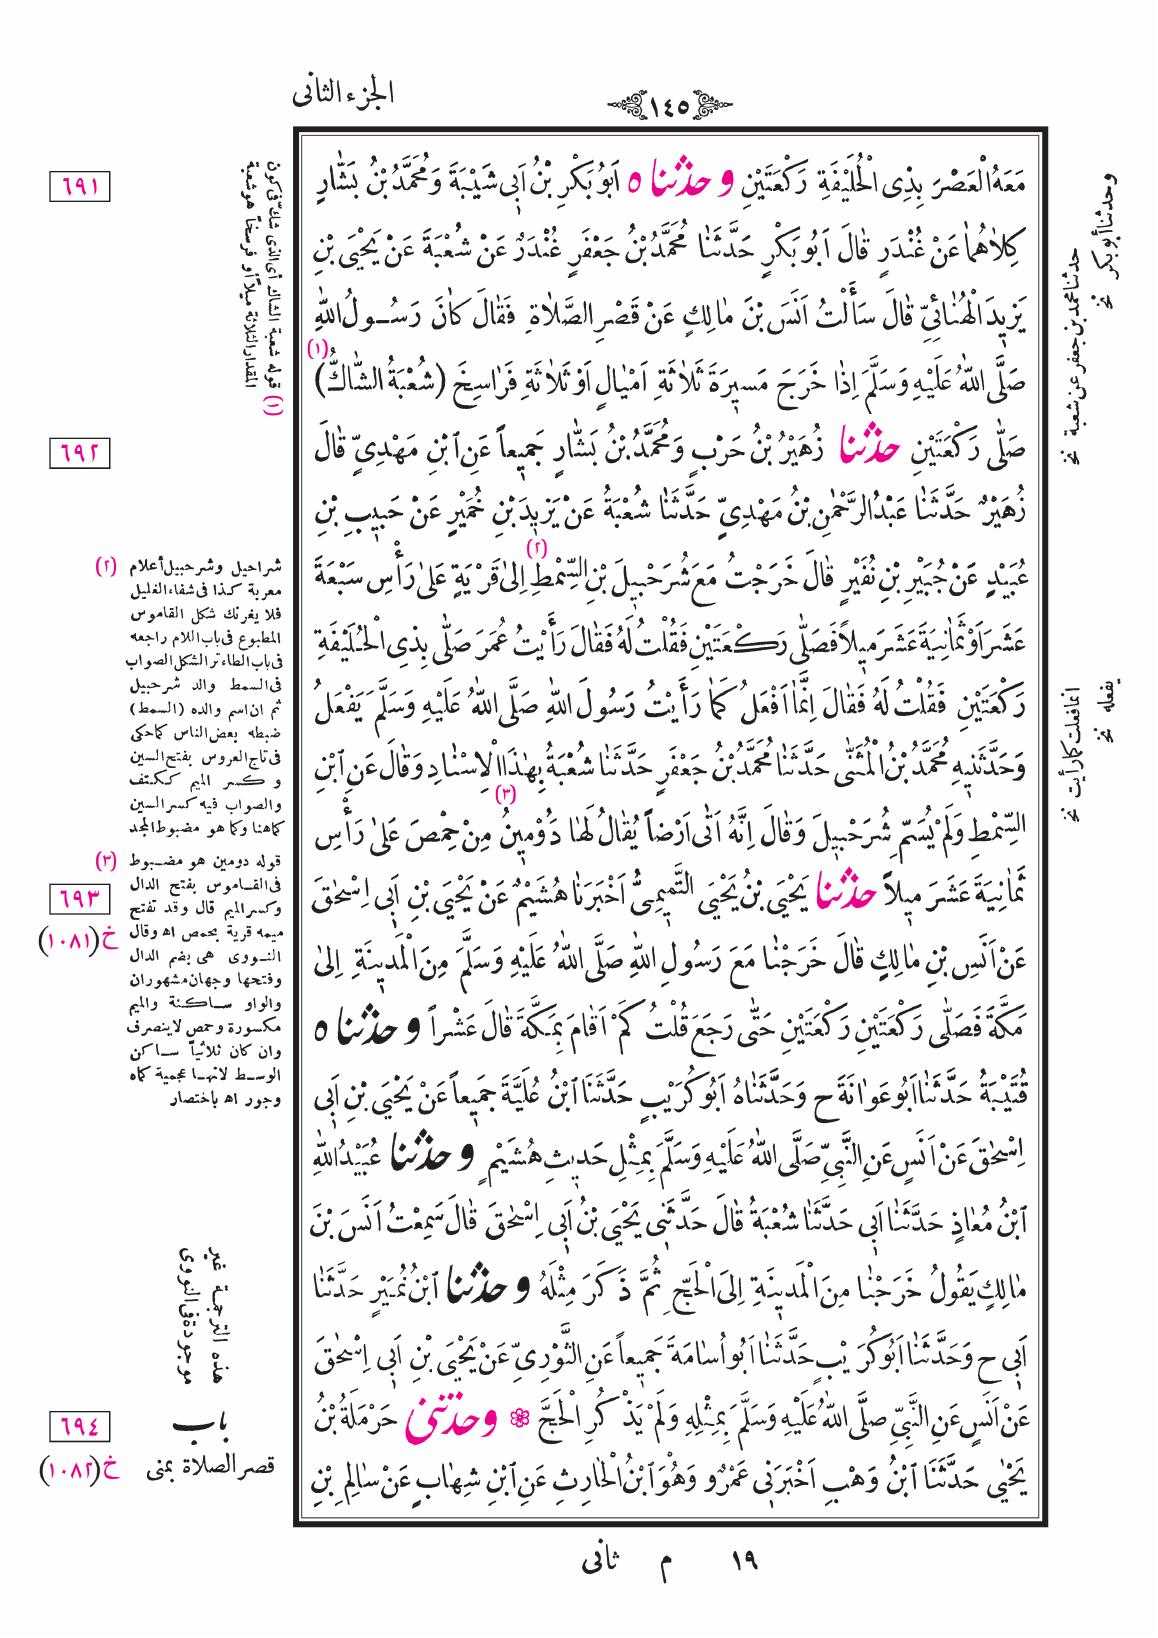 الجزء الثانى
١٤٥
مَعَهُ الْعَصْرَ بِذِى الْحُلَيْفَةِ رَكْعَتَيْنِ وحدثناه اَبُو بَكْرِ بْنُ اَبِى شَيْبَةَ وَمُحَمَّدُ بْنُ بَشَّارٍ
كِلاٰهُمٰا عَنْ غُنْدَرٍ قٰالَ اَبُو بَكْرٍ حَدَّثَنٰا مُحَمَّدُ بْنُ جَعْفَرٍ غُنْدَرٌ عَنْ شُعْبَةَ عَنْ يَحْيَى بْنِ
يَزِيدَ الْهُنٰائِىِّ قٰالَ سَأَلْتُ اَنَسَ بْنَ مٰالِكٍ عَنْ قَصْرِ الصَّلاٰةِ فَقٰالَ كٰانَ رَسُولُ اللّٰهِ
صَلَّى اللّٰهُ عَلَيْهِ وَسَلَّمَ اِذٰا خَرَجَ مَسِيرَةَ ثَلاٰثَةِ اَمْيٰالٍ اَوْ ثَلاٰثَةِ فَرٰاسِخَ (شُعْبَةُ الشّٰاكُّ) (١)
صَلّٰى رَكْعَتَيْنِ حدثنا زُهَيْرُ بْنُ حَرْبٍ وَمُحَمَّدُ بْنُ بَشّٰارٍ جَمِيعاً عَنِ ابْنِ مَهْدِىٍّ قٰالَ
زُهَيْرٌ حَدَّثَنٰا عَبْدُ الرَّحْمٰنِ بْنُ مَهْدِىٍّ حَدَّثَنٰا شُعْبَةُ عَنْ يَزِيدَ بْنِ خُمَيْرٍ عَنْ حَبِيبِ بْنِ
عُبَيْدٍ عَنْ جُبَيْرِ بْنِ نُفَيْرٍ قٰالَ خَرَجْتُ مَعَ شُرَحْبِيلَ بْنِ السِّمْطِ (٢) اِلىٰ قَرْيَةٍ عَلىٰ رَأْسِ سَبْعَةَ
عَشَرَ اَوْ ثَمٰانِيَةَ عَشَرَ مِيلاً فَصَلّٰى رَكْعَتَيْنِ فَقُلْتُ لَهُ فَقٰالَ رَأَيْتُ عُمَرَ صَلّٰى بِذِى الْحُلَيْفَةِ
رَكْعَتَيْنِ فَقُلْتُ لَهُ فَقٰالَ اِنَّمٰا اَفْعَلُ كَمٰا رَأَيْتُ رَسُولَ اللّٰهِ صَلَّى اللّٰهُ عَلَيْهِ وَسَلَّمَ يَفْعَلُ
وَحَدَّثَنِيهِ مُحَمَّدُ بْنُ الْمُثَنّٰى حَدَّثَنٰا مُحَمَّدُ بْنُ جَعْفَرٍ حَدَّثَنٰا شُعْبَةُ بِهٰذَا الْاِسْنٰادِ وَقٰالَ عَنِ ابْنِ
السِّمْطِ وَلَمْ يُسَمِّ شُرَحْبِيلَ وَقٰالَ اِنَّهُ اَتٰى اَرْضاً يُقٰالُ لَهٰا دَوْمِينُ (٣) مِنْ حِمْصَ عَلىٰ رَأْسِ
ثَمٰانِيَةَ عَشَرَ مِيلاً حدثنا يَحْيَى بْنُ يَحْيَى التَّمِيمِىُّ اَخْبَرَنٰا هُشَيْمٌ عَنْ يَحْيَى بْنِ اَبِى اِسْحٰقَ
عَنْ اَنَسِ بْنِ مٰالِكٍ قٰالَ خَرَجْنٰا مَعَ رَسُولِ اللّٰهِ صَلَّى اللّٰهُ عَلَيْهِ وَسَلَّمَ مِنَ الْمَدِينَةِ اِلىٰ
مَكَّةَ فَصَلّٰى رَكْعَتَيْنِ رَكْعَتَيْنِ حَتّٰى رَجَعَ قُلْتُ كَمْ اَقٰامَ بِمَكَّةَ قٰالَ عَشْراً وحدثناه
قُتَيْبَةُ حَدَّثَنٰا اَبُو عَوٰانَةَ ح وَحَدَّثَنٰاهُ اَبُو كُرَيْبٍ حَدَّثَنَا ابْنُ عُلَيَّةَ جَمِيعاً عَنْ يَحْيَى بْنِ اَبِى
اِسْحٰقَ عَنْ اَنَسٍ عَنِ النَّبِىِّ صَلَّى اللّٰهُ عَلَيْهِ وَسَلَّمَ بِمِثْلِ حَدِيثِ هُشَيْمٍ وحدثنا عُبَيْدُ اللّٰهِ
ابْنُ مُعٰاذٍ حَدَّثَنٰا اَبِى حَدَّثَنٰا شُعْبَةُ قٰالَ حَدَّثَنِى يَحْيَى بْنُ اَبِى اِسْحٰقَ قٰالَ سَمِعْتُ اَنَسَ بْنَ
مٰالِكٍ يَقُولُ خَرَجْنٰا مِنَ الْمَدِينَةِ اِلَى الْحَجِّ ثُمَّ ذَكَرَ مِثْلَهُ وحدثنا ابْنُ نُمَيْرٍ حَدَّثَنٰا
اَبِى ح وَحَدَّثَنٰا اَبُو كُرَيْبٍ حَدَّثَنٰا اَبُو اُسٰامَةَ جَمِيعاً عَنِ الثَّوْرِىِّ عَنْ يَحْيَى بْنِ اَبِى اِسْحٰقَ
عَنْ اَنَسٍ عَنِ النَّبِىِّ صَلَّى اللّٰهُ عَلَيْهِ وَسَلَّمَ بِمِثْلِهِ وَلَمْ يَذْكُرِ الْحَجَّ ❁ وحدثنى حَرْمَلَةُ بْنُ
يَحْيٰى حَدَّثَنَا ابْنُ وَهْبٍ اَخْبَرَنِى عَمْرٌو وَهُوَ ابْنُ الْحٰارِثِ عَنِ ابْنِ شِهٰابٍ عَنْ سٰالِمِ بْنِ
وحدثنا أبو بكر نخ
حدثنا محمد بن جعفر عن شعبة نخ
يفعله نخ
انما فعلت كما رأيت نخ
٦٩١
(١) قوله شعبة الشاك أى الذى شك فى كون
المقدار الثلاثة ميلاً أو فرسخاً هو شعبة
٦٩٢
(٢) شراحيل وشرحبيل أعلام
معربة كذا فى شفاء الغليل
فلا يغرنك شكل القاموس
المطبوع فى باب اللام راجعه
فى باب الطاء تر الشكل الصواب
فى السمط والد شرحبيل
ثم ان اسم والده (السمط)
ضبطه بعض الناس كما حكى
فى تاج العروس بفتح السين
وكسر الميم ككتف
والصواب فيه كسر السين
كما هنا وكما هو مضبوط المجد
(٣) قوله دومين هو مضبوط
فى القاموس بفتح الدال
وكسر الميم قال وقد تفتح
ميمه قرية بحمص اه وقال
النووى هى بضم الدال
وفتحها وجهان مشهوران
والواو ساكنة والميم
مكسورة وحمص لا ينصرف
وان كان ثلاثياً ساكن
الوسط لانها عجمية كماه
وجور اه باختصار
٦٩٣
خ (١٠٨١)
هذه الترجمة غير
موجودة فى النووى
٦٩٤
باب
قصر الصلاة بمنى
خ (١٠٨٢)
١٩ م ثانى